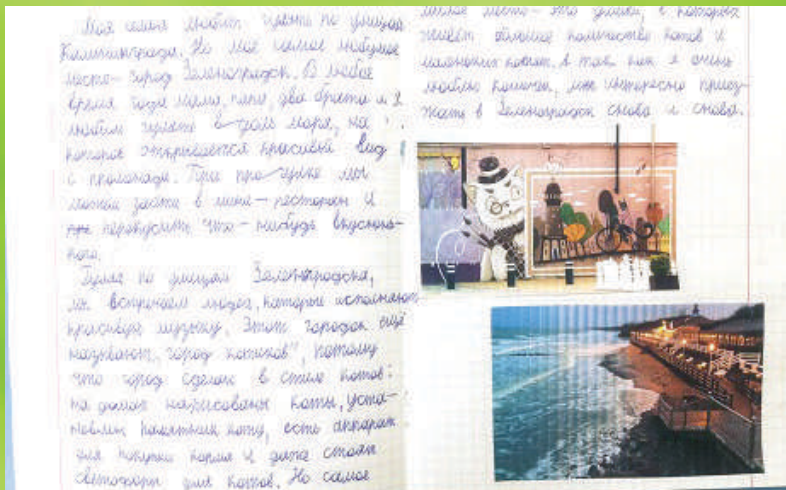 Моя семья любит гулять по улицам
Калининграда. Но моё самое любимое
место - город Зеленоградск. В любое
время года мама, папа, два брата и я
любим гулять в доль моря, на
которое открывается красивый вид
с променада. При прогулке мы
можем зайти в мини-ресторан и
перекусить что-нибудь вкуснень-
кого.
Гуляя по улицам Зеленоградска,
мы встречаем людей, которые исполняют
красивую музыку. Этот городок ещё
называют "город котиков", потому
что город сделан в стиле котов:
на домах нарисованы коты, уста-
новлен памятник коту, есть аппарат
для покупки корма и даже стоят
светофоры для котов. Но самое
милое место - это домики, в которых
живёт большое количество котов и
маленьких котят, а так как я очень
люблю кошечек, мне интересно приез-
жать в Зеленоградск снова и снова.